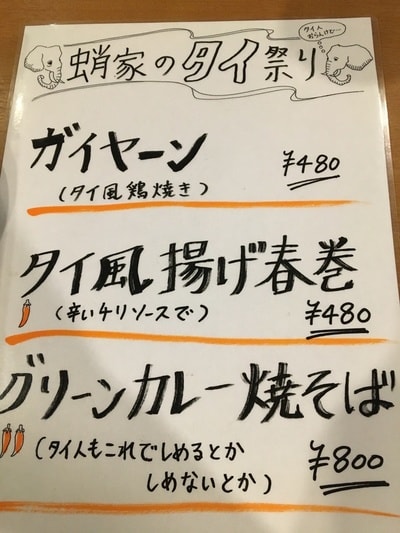 蛸家のタイ祭り
タイ人
おらんけど…
ガイヤーン
(タイ風鶏焼き)
¥480
タイ風揚げ春巻
(辛いチリソースで)
¥480
グリーンカレー焼そば
(タイ人もこれでしめるとか
しめないとか)
¥800